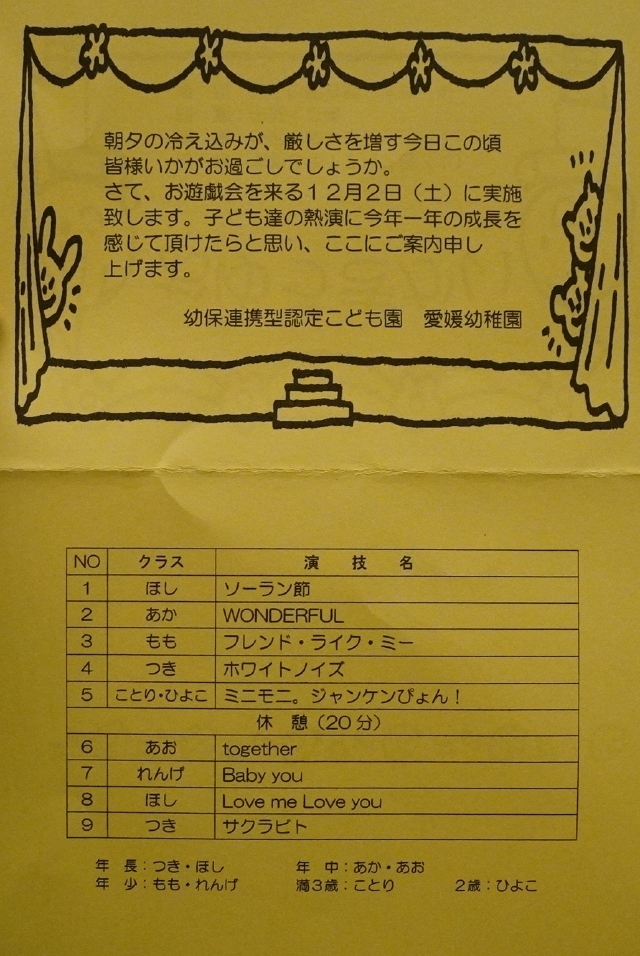 朝夕の冷え込みが、厳しさを増す今日この頃
皆様いかがお過ごしでしょうか。
さて、お遊戯会を来る１２月２日（土）に実施
致します。子ども達の熱演に今年一年の成長を
感じて頂けたらと思い、ここにご案内申し
上げます。
幼保連携型認定こども園　愛媛幼稚園
NO クラス 演　技　名
1 ほし ソーラン節
2 あか WONDERFUL
3 もも フレンド・ライク・ミー
4 つき ホワイトノイズ
5 ことり・ひよこ ミニモニ。ジャンケンぴょん！
休　憩（20分）
6 あお together
7 れんげ Baby you
8 ほし Love me Love you
9 つき サクラビト
年　長：つき・ほし　年　中：あか・あお
年　少：もも・れんげ　満３歳：ことり　２歳：ひよこ